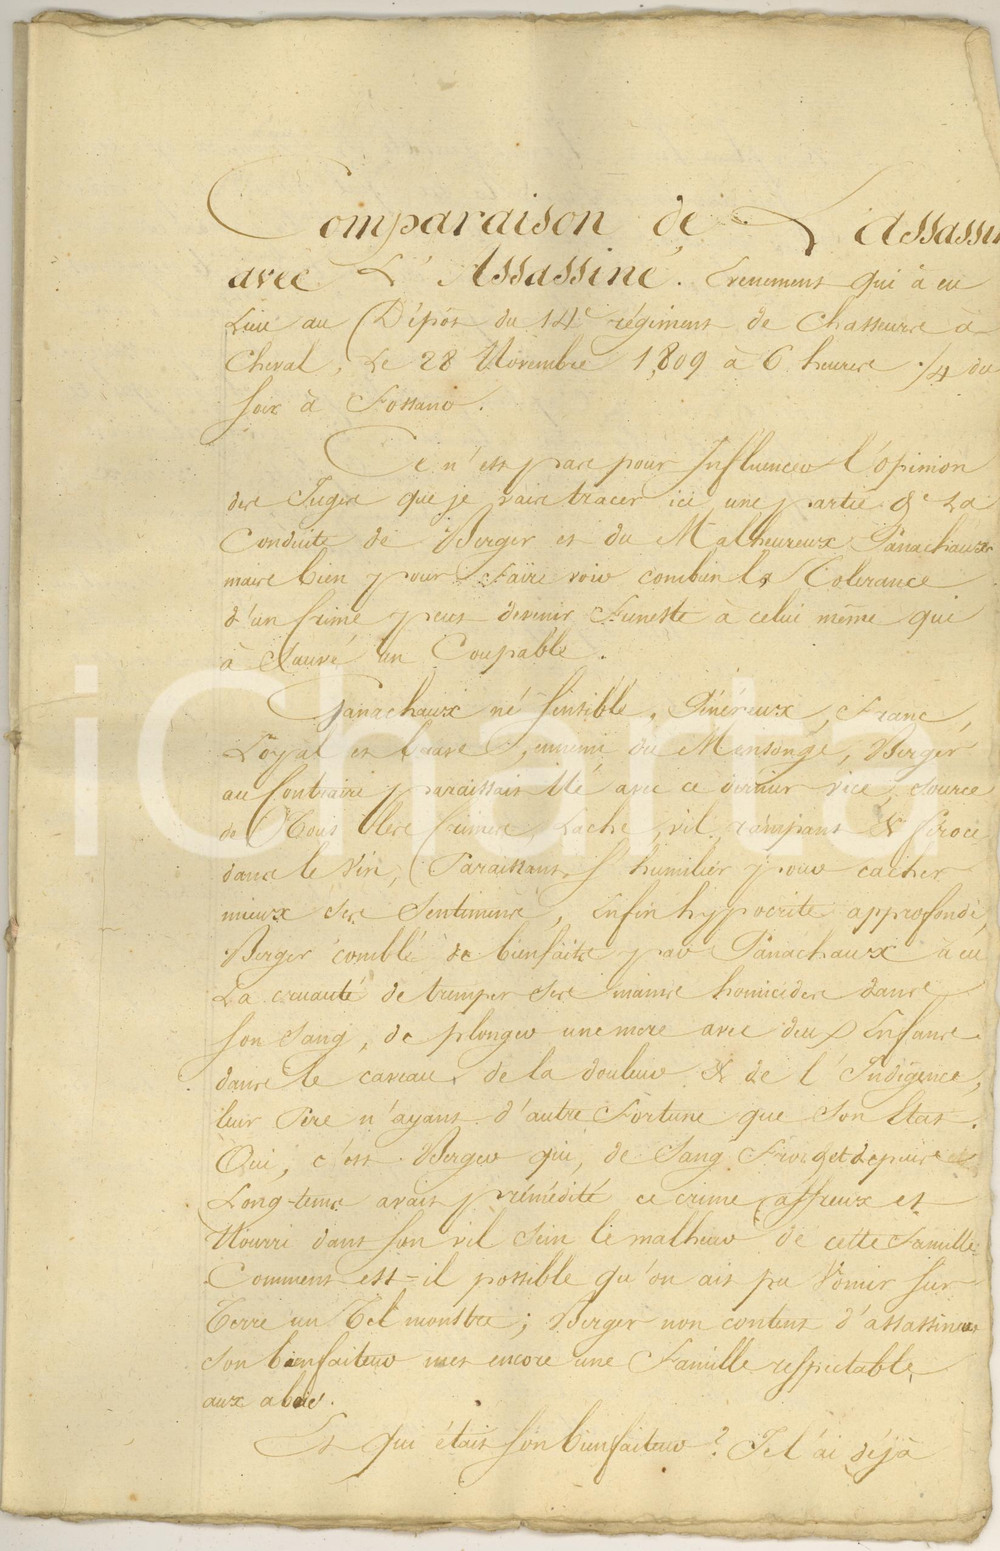 Comparaison de L'Assassin
avec L'Assassiné. Evenement qui à eu
Lieu au Dépôt du 14e régiment de Chasseurs à
Cheval, Le 28 Novembre 1,809 à 6 heures 1/4 du
soir à Fossano.
Ce n'est pas pour Influencer l'opinion
des Juges que je vais tracer ici une partie de La
Conduite de Berger et du Malheureux Panachaux
mais bien pour Faire voir combien la Tolerance
d'un Crime peut devenir Funeste à celui même qui
à Sauvé un Coupable.
Panachaux né Sensible, Généreux, Franc,
Loyal et brave, ennemi du Mensonge, Berger
au Contraire paraissait Né avec ce dernier vice, Source
de Tous Les Crimes, Lache, vil, rampant & feroce
dans le Vin, Paraissant S'humilier pour cacher
mieux ses Sentimens, Enfin hypocrite approfondi,
Berger comblé de bienfaits par Panachaux à eu
La cruauté de tremper ses mains homicides dans
son Sang, de plonger une mere avec deux Enfans
dans le caveau de la douleur & de l'Indigence,
leur Pere n'ayant d'autre Fortune que son Etat.
Oui, c'est Berger qui, de Sang Froid et depuis
Long-tems avait prémédité ce crime affreux et
Nourri dans son vil Sein le malheur de cette Famille.
Comment est-il possible qu'on ait pu Vomir sur
Terre un Tel monstre; Berger non content d'assassiner
son bienfaiteur met encore une Famille respectable
aux abois.
Et qui était son bienfaiteur? Je l'ai déjà
iCharta